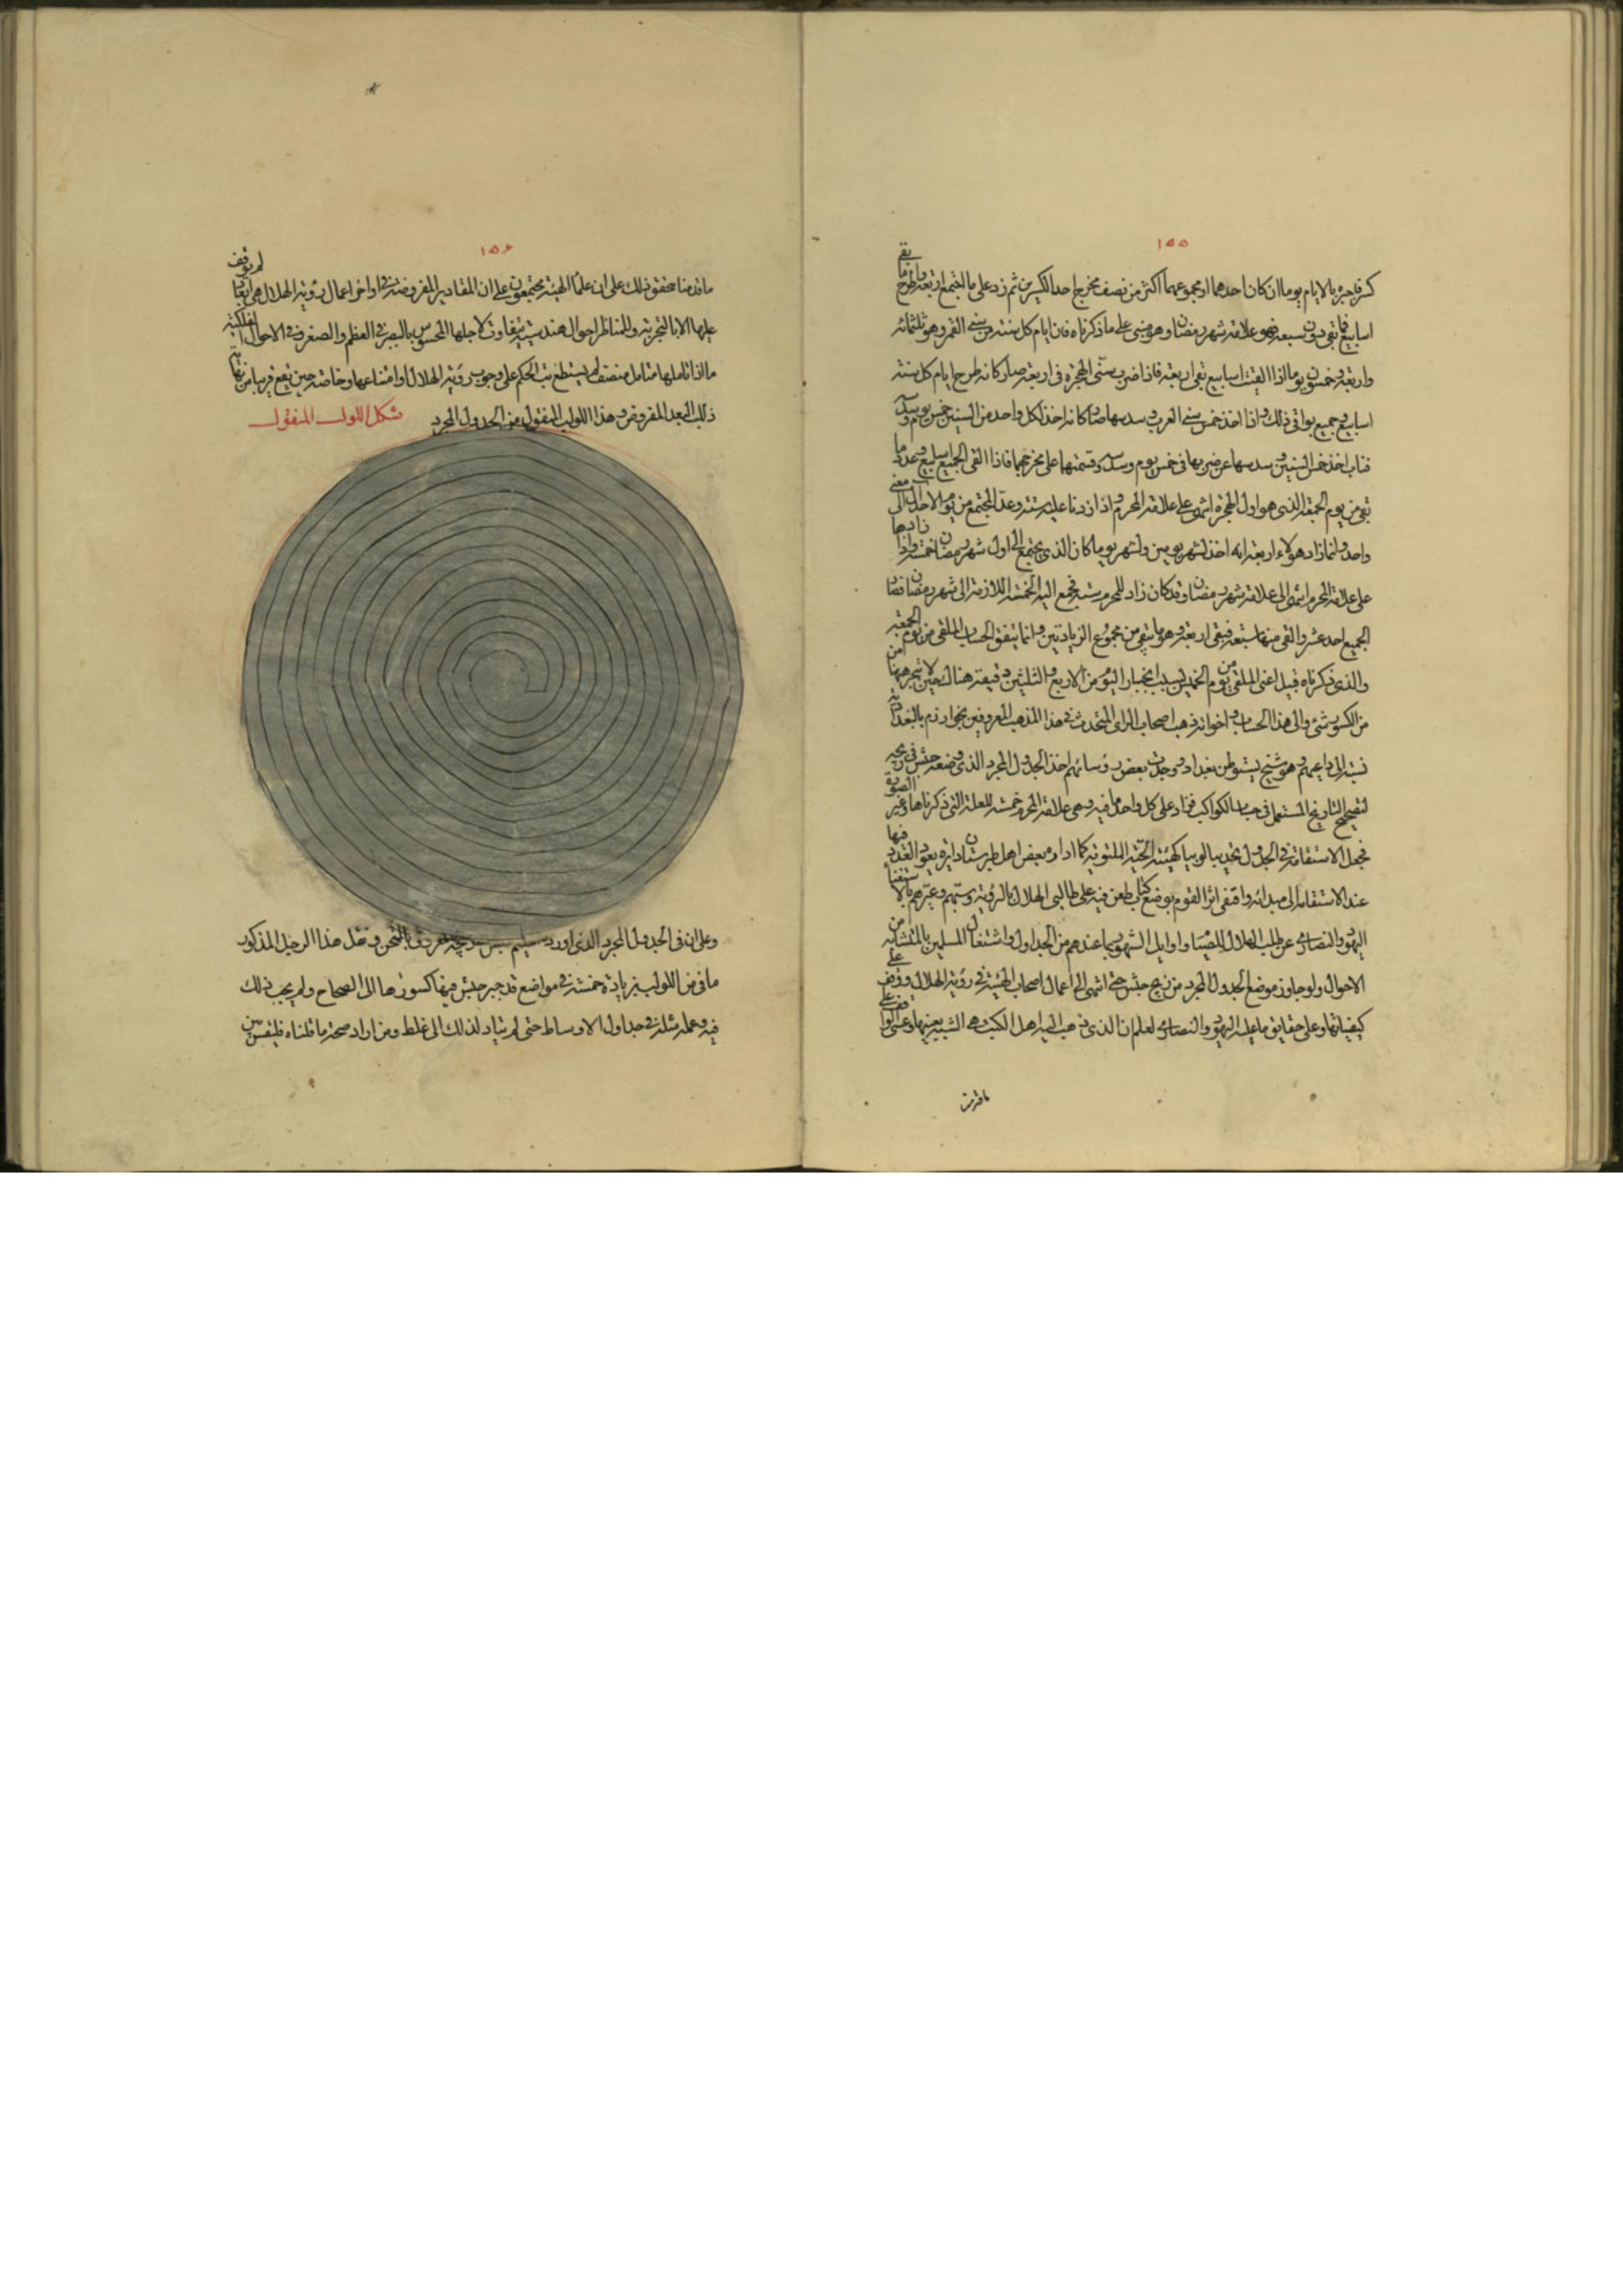 ١٥٥
كسر فاجبره بالايام يوما ان كان احدهما او مجموعهما اكثر من نصف مخرج احد الكسرين ثم زد على ما اجتمع اربعة واطرح ما بقى
اسابيع فما بقى دون سبعة فهو علامة شهر رمضان وهو مبنى على ما ذكرناه فان ايام كل سنة من سنى القمر وهو ثلثمائة
واربعة وخمسون يوما اذا القيت اسابيع بقى اربعة فاذا ضرب سنى الهجرة فى اربعة صار كانه طرح ايام كل سنة
اسابيع وجميع بواقى ذلك واذا اخذ خمس سنى العرب وسدسها صار كانه اخذ لكل واحد من السنين خمس يوم وسدسه
فناب اخذ خمس السنين وسدسها عن ضربها فى خمس يوم وسدسه وقسمتها على مخرجهما فاذا القى الجميع اسابيع وعد ما
بقى من يوم الجمعة الذى هو اول الهجرة انتهى على علامة المحرم واذا زدنا عليه ستة وعد المجتمع من يوم الاحد ال معنى
واحد وانما زاد هولاء اربعة انه اخذ لشهر يومين ولشهر يوما كان الذى يجتمع الى اول شهر رمضان خمسة واذا زادها
على علامة المحرم انتهى الى علامة شهر رمضان وقد كان زاد للمحرم ستة فجمع اليه الخمسة اللازمة الى شهر رمضان فصار
الجميع احد عشر والقى منها سبعة فبقى اربعة وهو ما بقى من مجموع الزيادتين وانما يتفق الحساب الملقى من يوم الجمعة
والذى ذكرناه قبيل اعنى الملقى من يوم الخميس بسبب انجبار اليوم من الاربع والثلثين دقيقة هناك حين لا تنجبر ههنا من
من الكسور شئ والى هذا الحساب واخواته ذهب اصحاب الراى المتحدث فى هذا المذهب المعروفين بخوارزم بالبغدادية
نسبة الى داعيهم وهو شيخ يستوطن بغداد ووجدت بعض روسائهم اخذ الجدول المجرد الذى وضعه حبش فى زيجه
لتصحيح التاريخ المستعمل فى حساب الكواكب فزاد على كل واحد ما فيه وهى علامة المحرم خمسة للعلة التى ذكرناها وغير الصورة
فجعل الاستقامة فى الجدول تحديبا لولبيا كهيئة الحية الملتوية كما اداره بعض اهل طبرستان دايرة يعود العدد فيها
عند الاستقامة الى مبدائه واقتفى اثر القوم بوضع كتاب طعن فيه على طالبى الهلال بالرؤية وسبهم وعيرهم بالاستغناء
اليهود والنصارى عن طلب الهلال للصيام واوايل الشهور بما عندهم من الجداول واشتغال المسلمين بالمتشابه من
الاحوال ولو جاوز موضع الجدول المجرد من زيج حبش حتى انتهى الى اعمال اصحاب الهيئة فى رؤية الهلال ووقف على
كيفياتها وعلى حقايق ما عليه اليهود والنصارى لعلم ان الذى ذهب اليه اهل الكتب هى الشبه بعينها وعسى لو وقف على
ما قدمنا
١٥٦
ما قدمنا تحقق ذلك على ان علماء الهيئة مجتمعون على ان المقادير المفروضة فى اواخر اعمال رؤية الهلال هى ابعاد لم يوقف
عليها الا بالتجربة وللمناظر احوال هندسية يتفاوت لاجلها المحسوس بالبصر فى العظم والصغر وفى الاحوال الفلكية
ما اذا تاملها متامل منصف لم يستطع بت الحكم على وجوب رؤية الهلال او امتناعها وخاصة حين يقع قريبا من نهاية
ذلك البعد المفروض وهذا اللولب المنقول من الجدول المجرد شكل اللولب المنقول
وعلى ان فى الجدول المجرد الذى اورده معروف بالممتحن ونقل هذا الرجل المذكور
ما فى من اللولب بزيادة خمسة فى مواضع قد جبر حبش فيها كسورها الى الصحاح ولم يجب ذلك
فيه وعمل مثله فى جداول الاوساط حتى لم يتاد لذلك الى غلط ومن اراد صحة ما قلناه فليقس بين